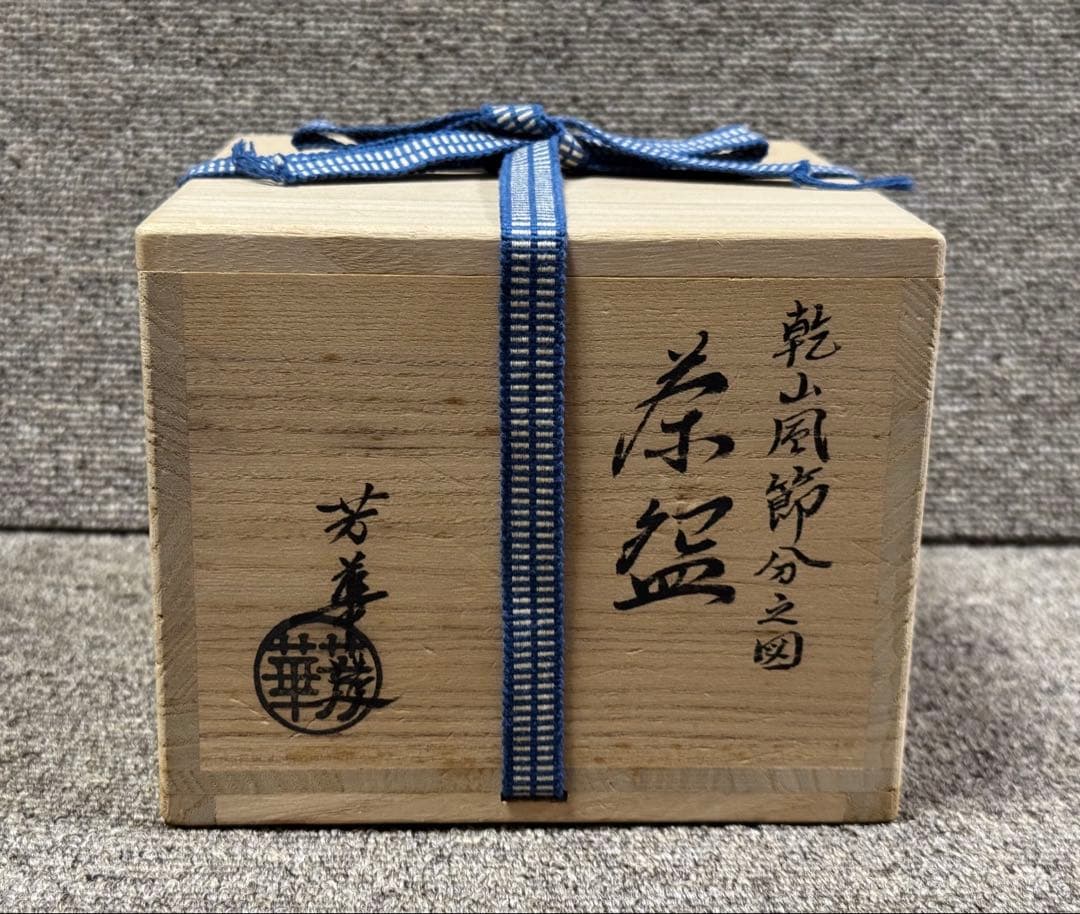 乾山風節分之図
茶盌
芳華
華